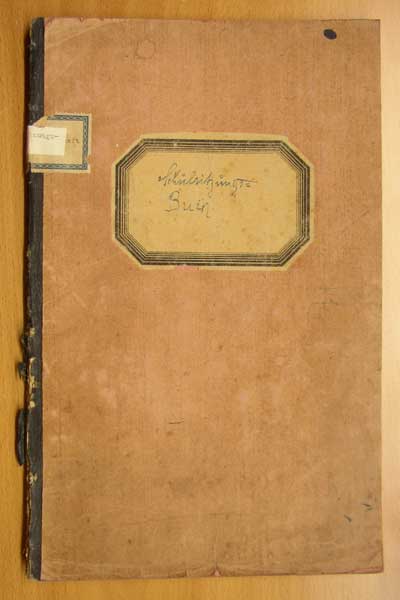 Schulsitzungs=
Buch